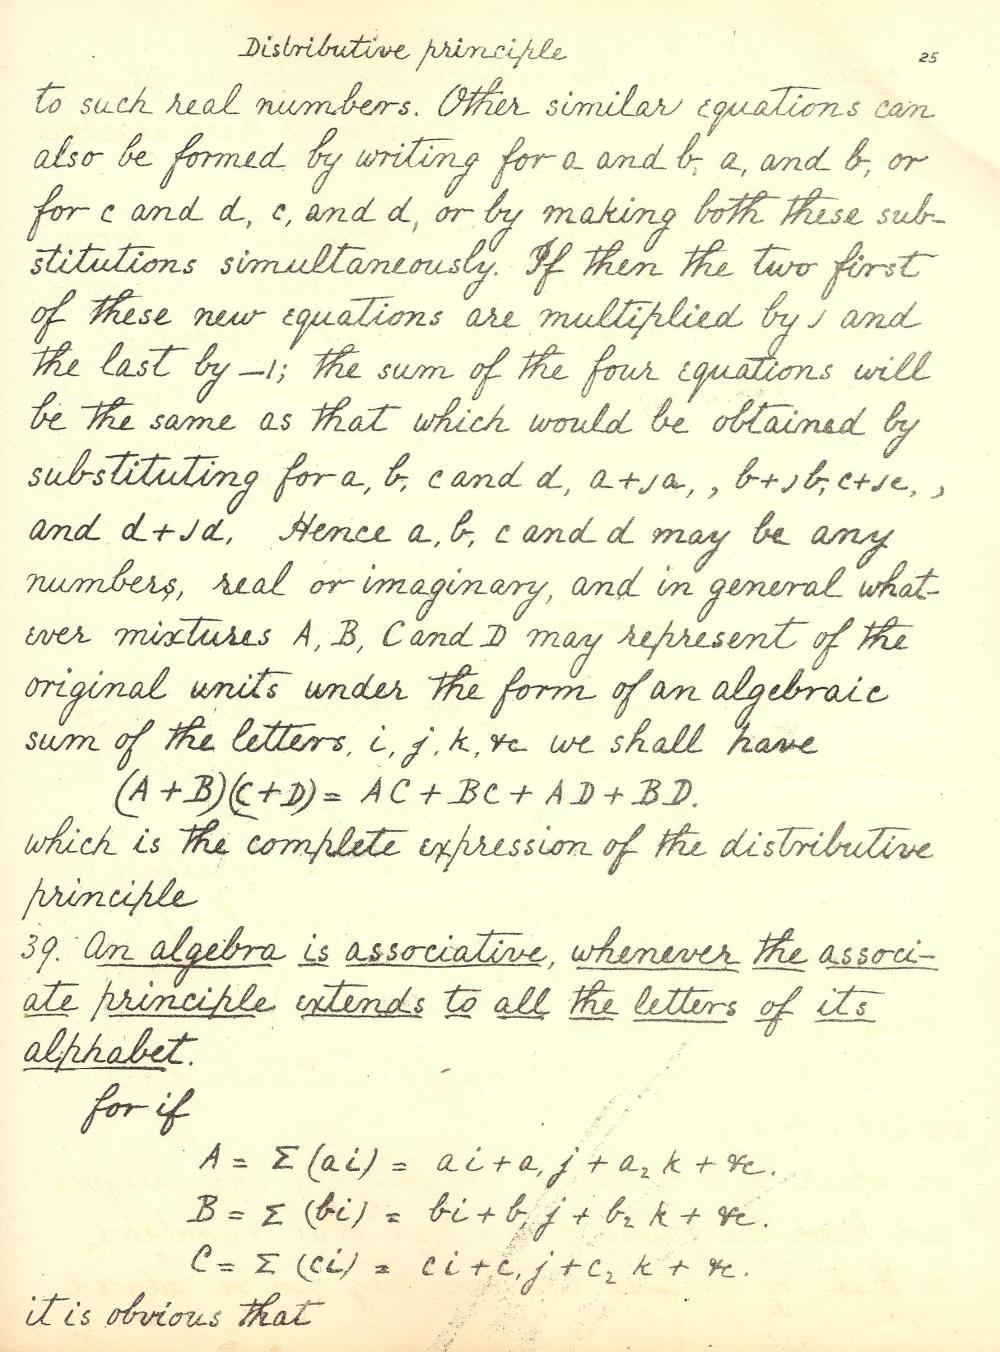 Distributive principle 25
to such real numbers. Other similar equations can
also be formed by writing for a and b, a, and b, or
for c and d, c, and d, or by making both these sub-
stitutions simultaneously. If then the two first
of these new equations are multiplied by ȷ and
the last by –1; the sum of the four equations will
be the same as that which would be obtained by
substituting for a, b, c and d, a+ȷa, , b+ȷb, c+ȷc, ,
and d+ȷd, Hence a, b, c and d may be any
numbers, real or imaginary, and in general what-
ever mixtures A, B, C and D may represent of the
original units under the form of an algebraic
sum of the letters, i, j, k, &c we shall have
(A+B)(C+D) = AC + BC + AD + BD.
which is the complete expression of the distributive
principle
39. An algebra is associative, whenever the associ-
ate principle extends to all the letters of its
alphabet.
for if
A = Σ (ai) = ai + a, j + a₂ k + &c.
B = Σ (bi) = bi + b, j + b₂ k + &c.
C = Σ (ci) = ci + c, j + c₂ k + &c.
it is obvious that